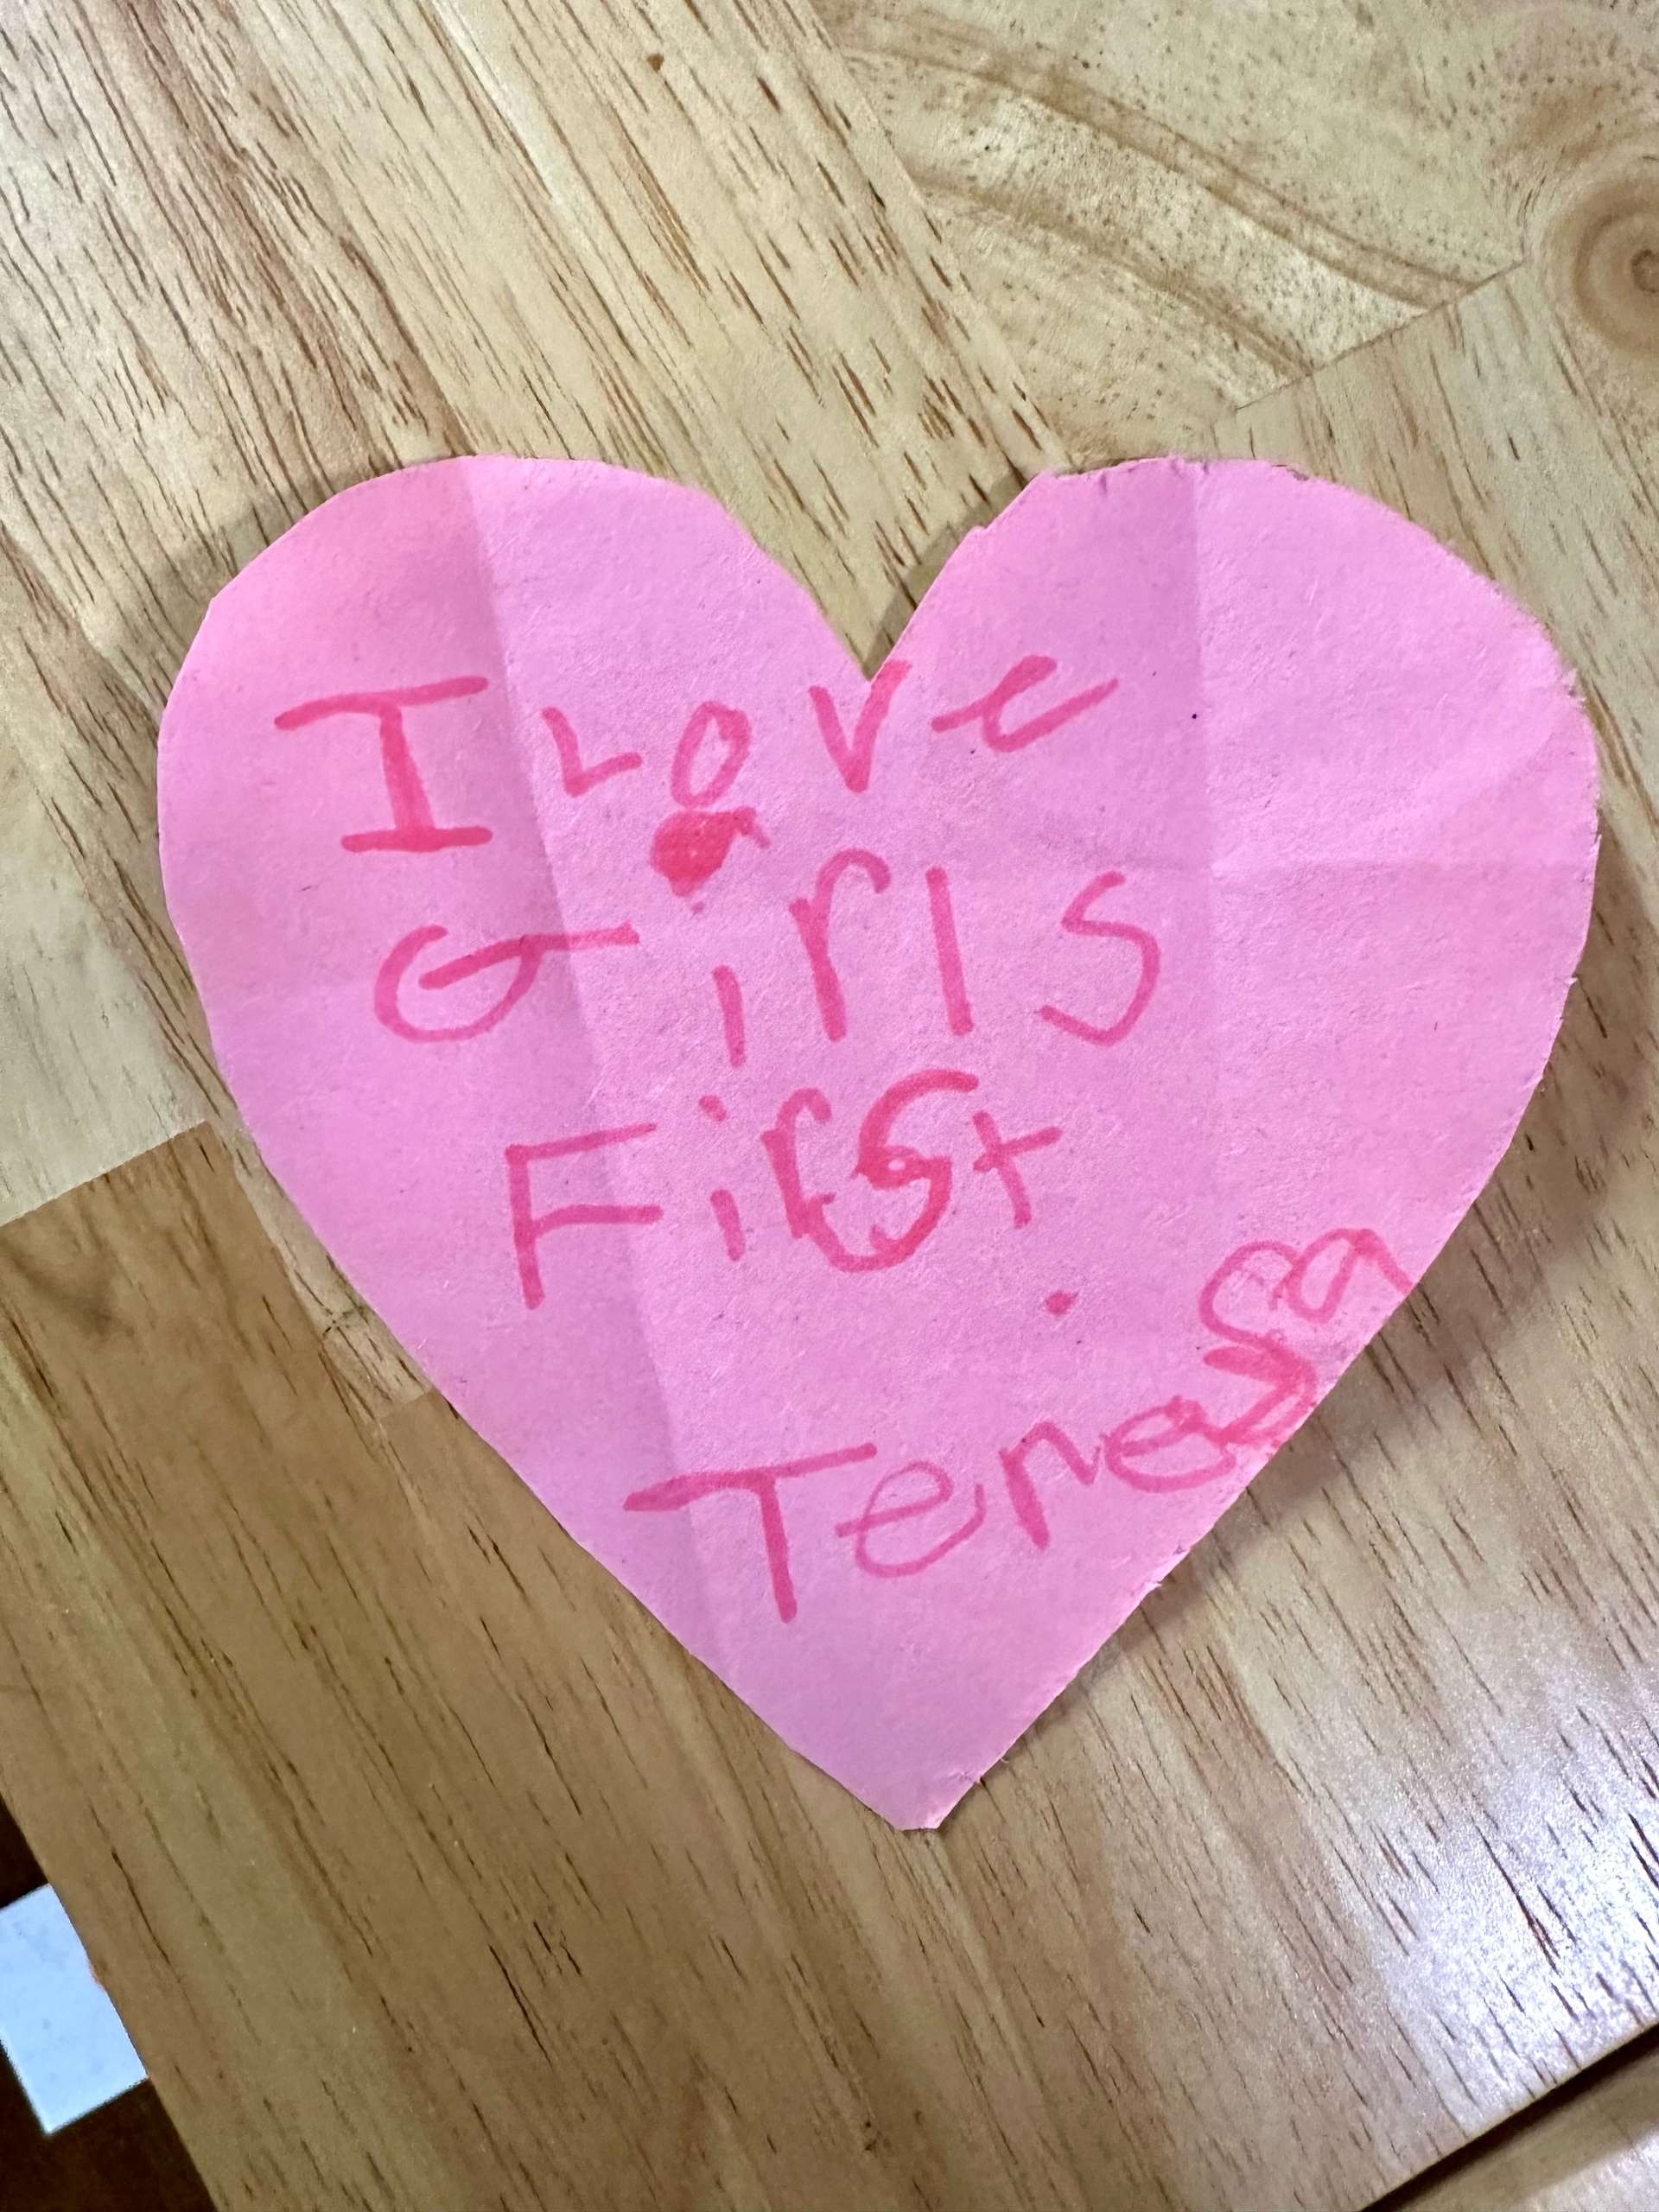 I Love
Girls
First
Teresa